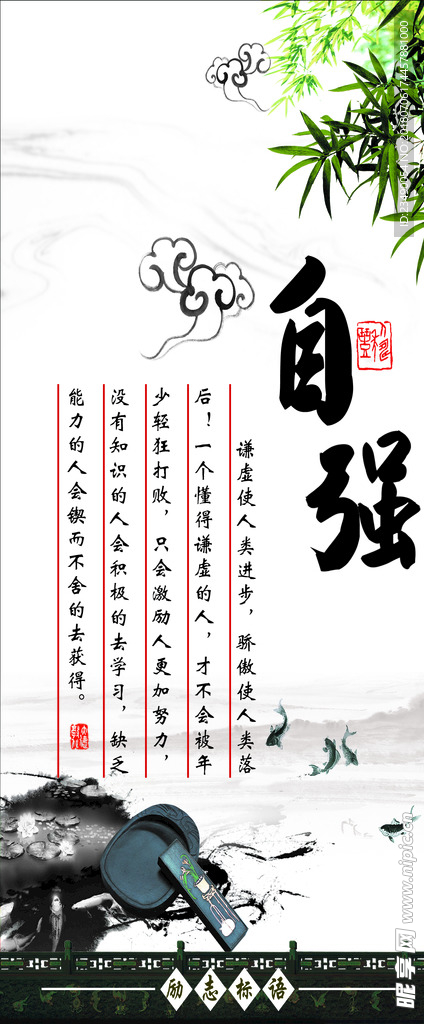 自强
谦虚使人类进步，骄傲使人类落
后！一个懂得谦虚的人，才不会被年
少轻狂打败，只会激励人更加努力，
没有知识的人会积极的去学习，缺乏
能力的人会锲而不舍的去获得。
励志标语
昵享网 www.nipic.cn